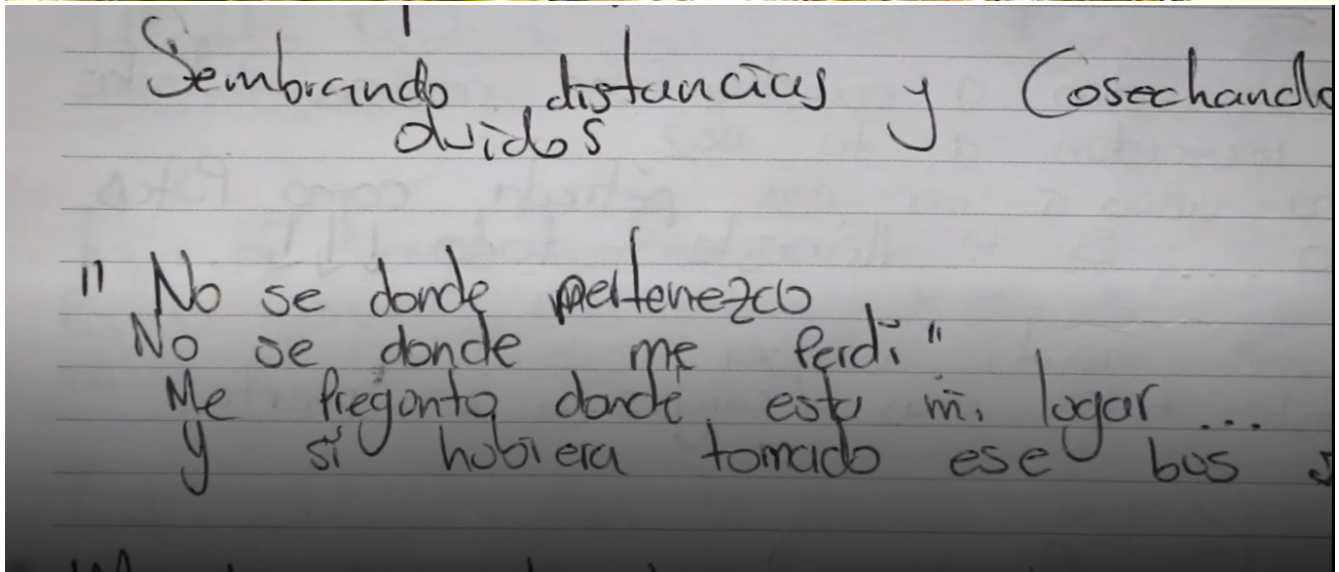 Sembrando distancias y Cosechando
olvidos
" No se donde pertenezco
No se donde me Perdi "
Me Pregonto donde esta mi logar ...
y si hobiera tomado ese bos